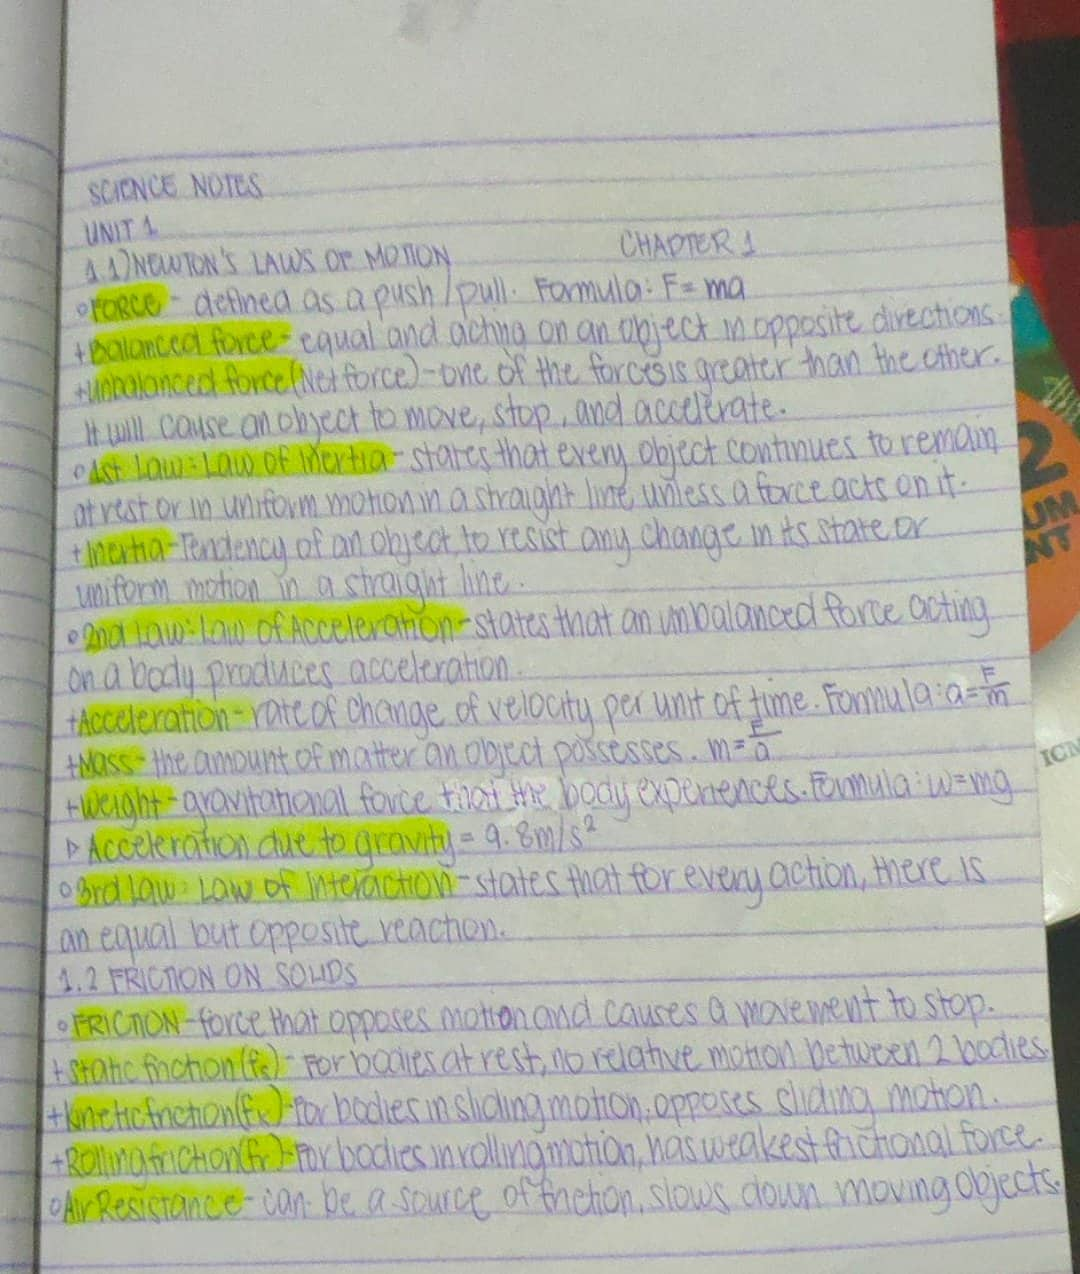 SCIENCE NOTES
UNIT 1
CHAPTER 1
1.1) NEWTON'S LAWS OF MOTION
○ FORCE - defined as a push/pull. Formula: F = ma
+ Balanced force - equal and acting on an object in opposite directions.
+ Unbalanced force (Net force) - one of the forces is greater than the other.
It will cause an object to move, stop, and accelerate.
○ 1st Law: Law of Inertia - states that every object continues to remain
at rest or in uniform motion in a straight line, unless a force acts on it.
+ Inertia - Tendency of an object to resist any change in its state or
uniform motion in a straight line.
○ 2nd Law: Law of Acceleration - states that an unbalanced force acting
on a body produces acceleration.
+ Acceleration - rate of change of velocity per unit of time. Formula: a = F/m
+ Mass - the amount of matter an object possesses. m = F/a
+ Weight - gravitational force that the body experiences. Formula: w = mg
▷ Acceleration due to gravity = 9.8m/s²
○ 3rd Law: Law of Interaction - states that for every action, there is
an equal but opposite reaction.
1.2 FRICTION ON SOLIDS
○ FRICTION - force that opposes motion and causes a movement to stop.
+ Static friction (fs) - For bodies at rest, no relative motion between 2 bodies.
+ Kinetic friction (fk) - For bodies in sliding motion, opposes sliding motion.
+ Rolling friction (fr) - For bodies in rolling motion, has weakest frictional force.
○ Air Resistance - can be a source of friction, slows down moving objects.
2
UM
NT